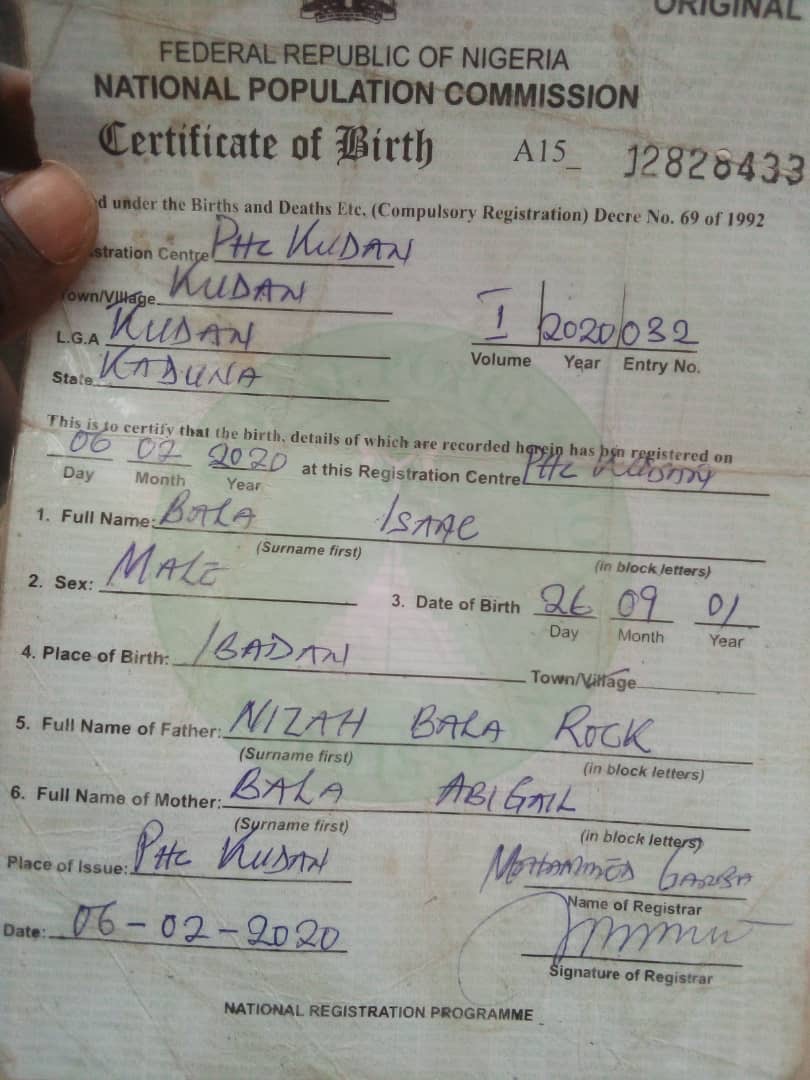 ORIGINAL
FEDERAL REPUBLIC OF NIGERIA
NATIONAL POPULATION COMMISSION
Certificate of Birth A15_ 12828433
d under the Births and Deaths Etc. (Compulsory Registration) Decre No. 69 of 1992
stration Centre PHC KUDAN
Town/Village KUDAN
L.G.A KUDAN
State KADUNA
I 2020 032
Volume Year Entry No.
This is to certify that the birth, details of which are recorded herein has been registered on
06 02 2020 at this Registration Centre PHC KUDAN
Day Month Year
1. Full Name: BALA ISAAC
(Surname first) (in block letters)
2. Sex: MALE
3. Date of Birth 26 09 01
Day Month Year
4. Place of Birth: IBADAN Town/Village
5. Full Name of Father: NIZAH BALA ROCK
(Surname first) (in block letters)
6. Full Name of Mother: BALA ABIGAIL
(Surname first) (in block letters)
Place of Issue: PHC KUDAN
MOHAMMED GARBA
Name of Registrar
Date: 06-02-2020
Signature of Registrar
NATIONAL REGISTRATION PROGRAMME